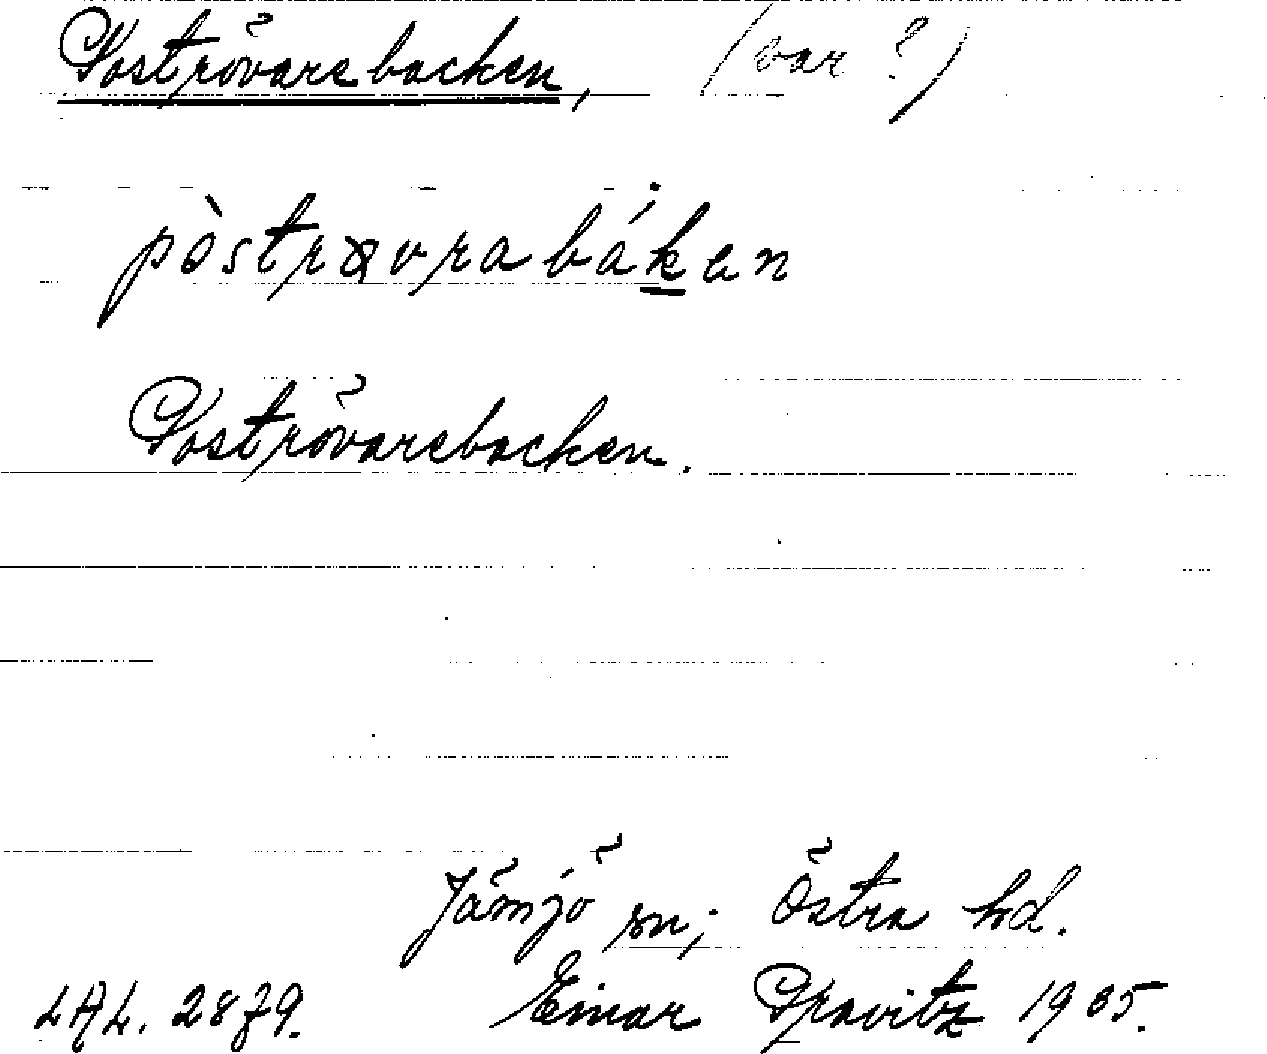 Poströvarebacken, (var ?)
pòstrøvrabáken
Poströvarebacken.
Jämjö sn; Östra hd.
LAL. 2879. Einar Pravitz 1905.